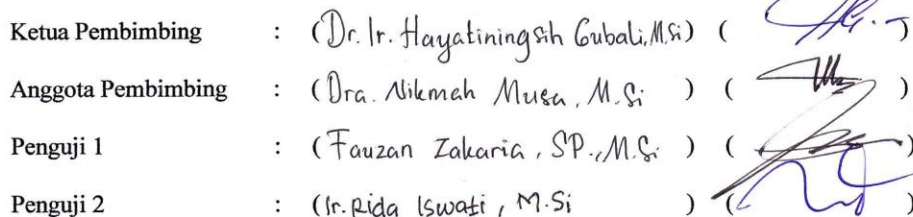 Ketua Pembimbing : (Dr. Ir. Hayatiningsih Gubali, M.Si) ( )
Anggota Pembimbing : (Dra. Nikmah Musa, M.Si ) ( )
Penguji 1 : (Fauzan Zakaria, SP., M.Si ) ( )
Penguji 2 : (Ir. Rida Iswati, M.Si ) ( )